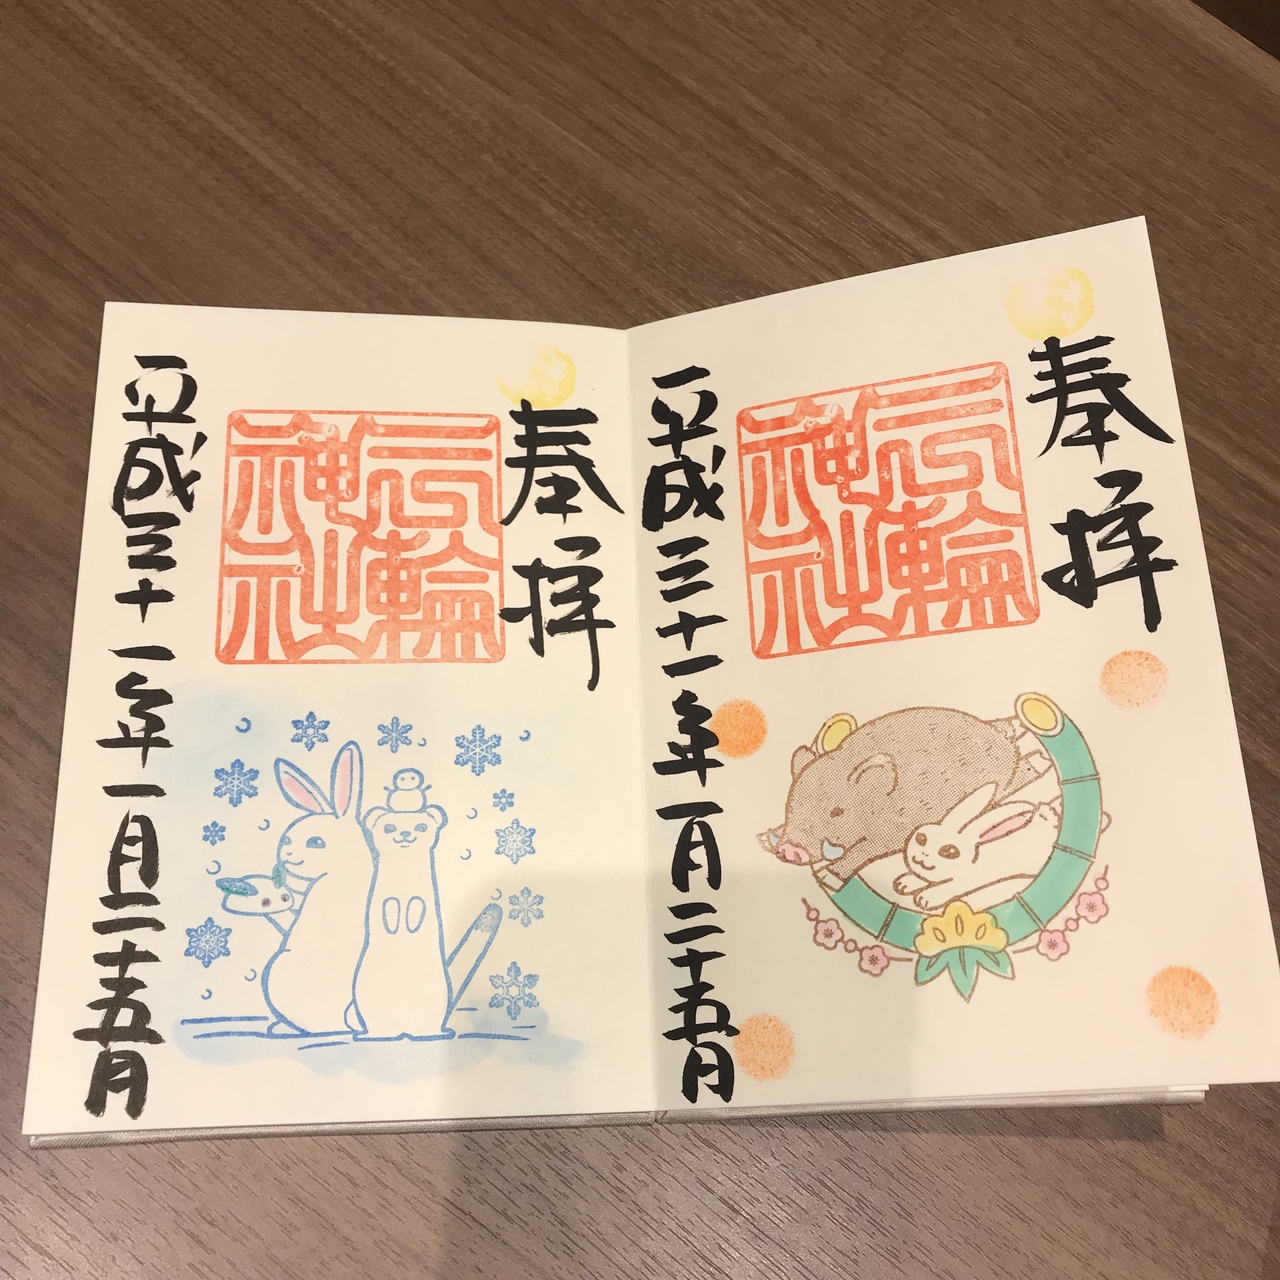 奉拝
三輪神社
平成三十一年一月二十五日
奉拝
三輪神社
平成三十一年一月二十五日